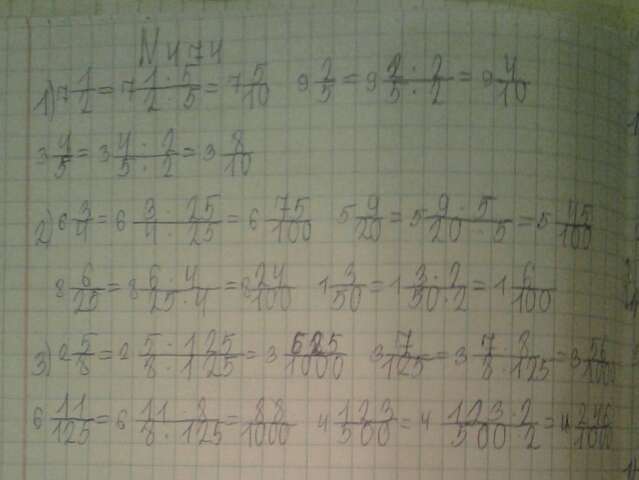 N 474
1) 7 1/2 = 7 1·5/2·5 = 7 5/10 9 2/5 = 9 2·2/5·2 = 9 4/10
3 4/5 = 3 4·2/5·2 = 3 8/10
2) 6 3/4 = 6 3·25/4·25 = 6 75/100 5 9/20 = 5 9·5/20·5 = 5 45/100
8 6/25 = 8 6·4/25·4 = 8 24/100 1 3/50 = 1 3·2/50·2 = 1 6/100
3) 2 5/8 = 2 5·125/8·125 = 3 625/1000 3 7/125 = 3 7·8/8·125 = 3 56/1000
6 11/125 = 6 11·8/8·125 = 88/1000 4 123/500 = 4 123·2/500·2 = 4 246/1000